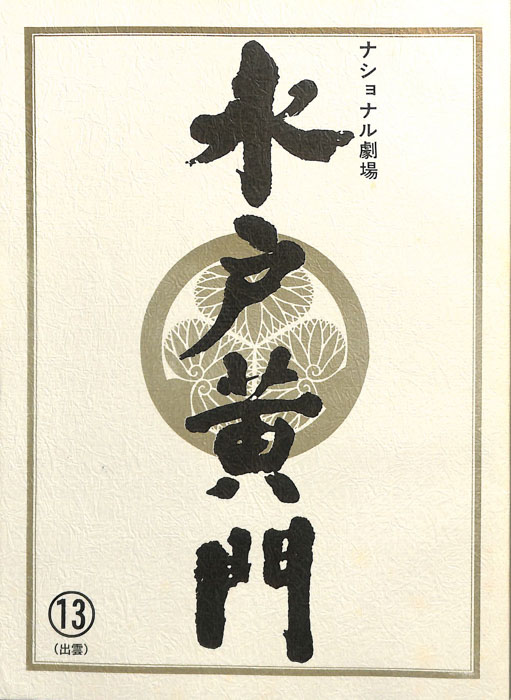 ナショナル劇場
水戸黄門
⑬
（出雲）